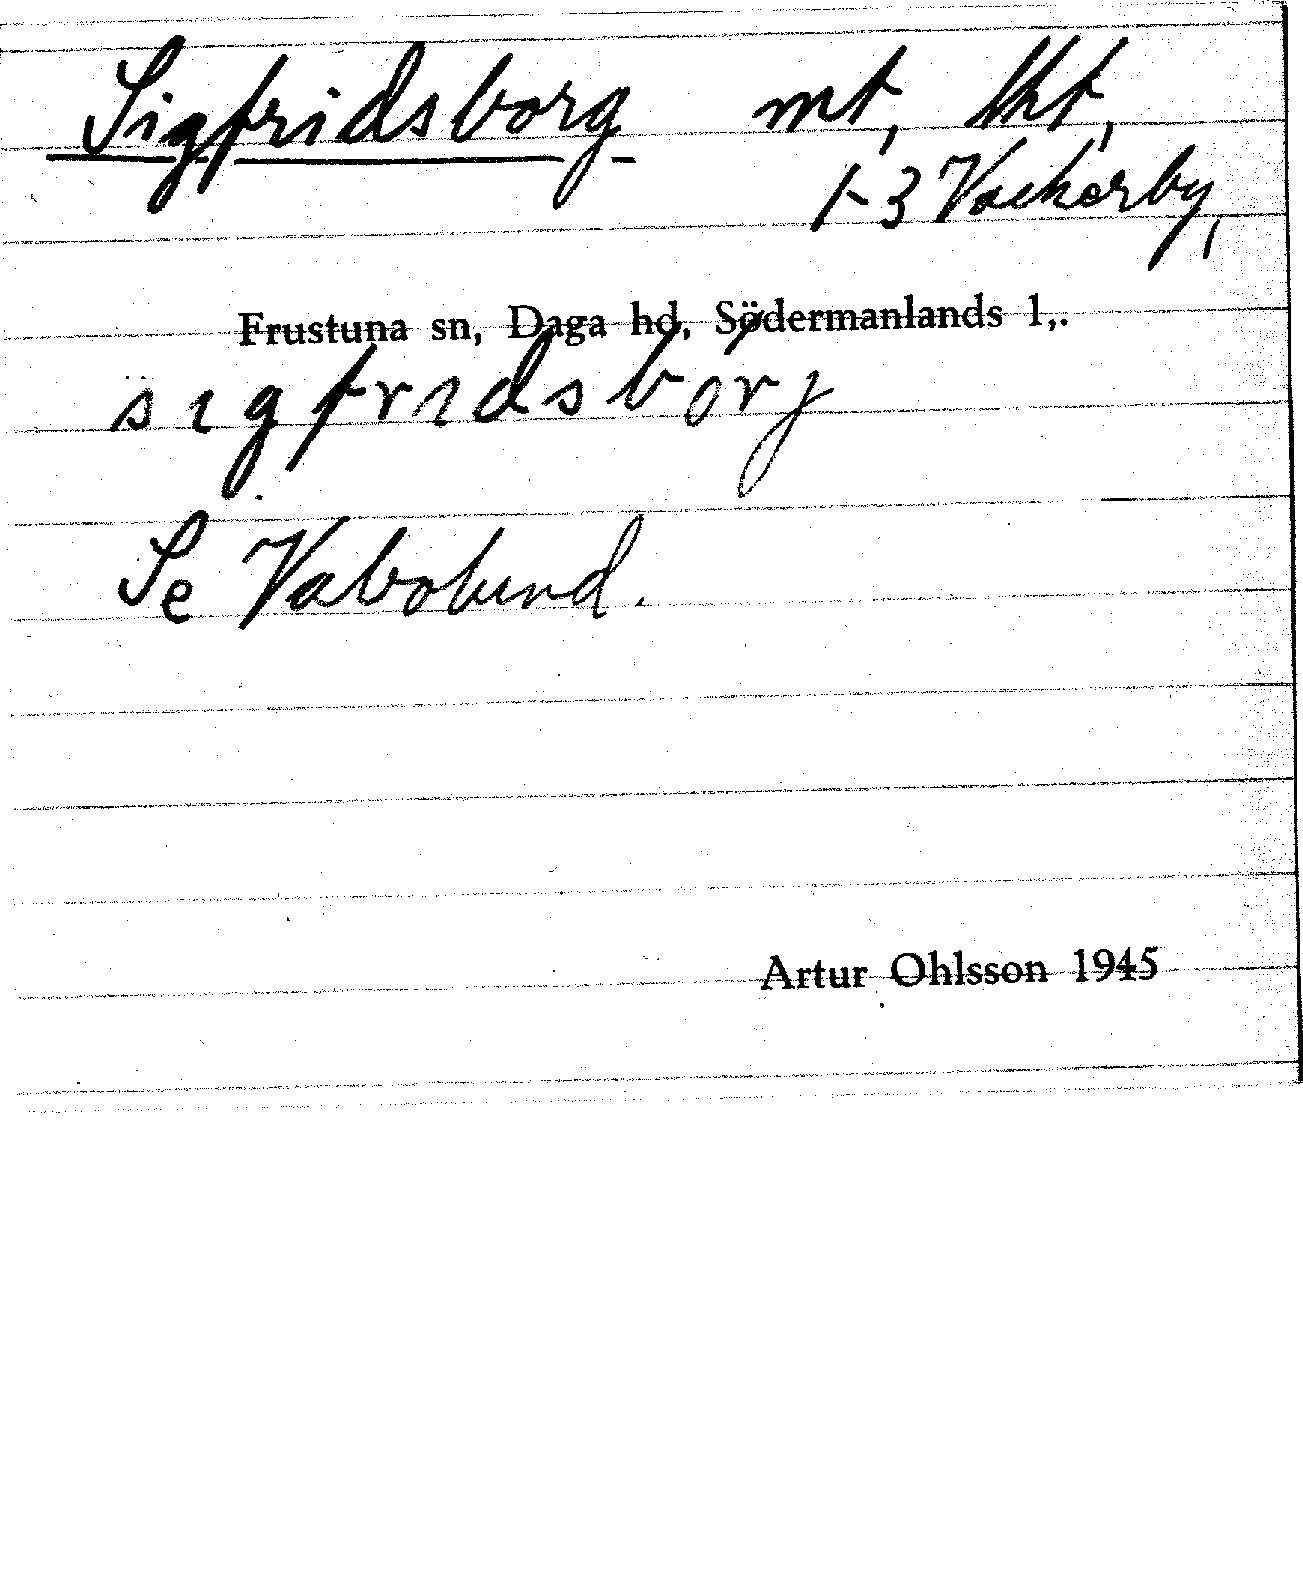 Sigfridsborg mt, lht,
1-3 Vackerby,
Frustuna sn, Daga hd, Södermanlands l,.
sıgfrıdsborg
Se Vabolund.
Artur Ohlsson 1945